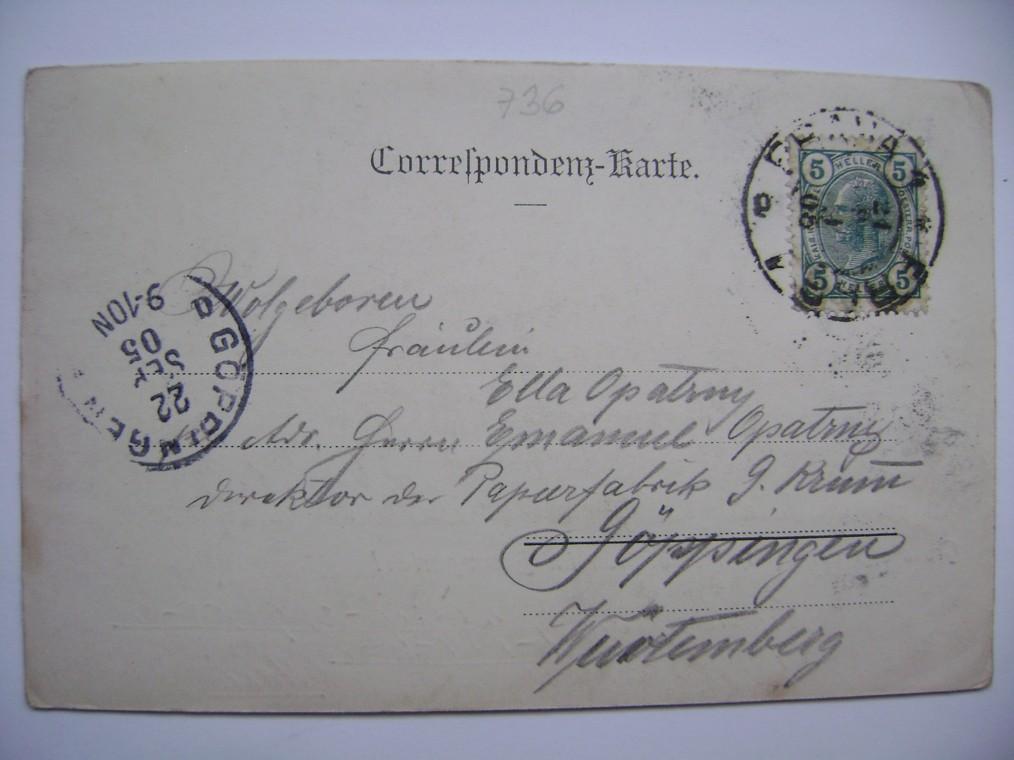 736
Correspondenz-Karte.
5 HELLER 5
5 HELLER 5
GÖPPINGEN
22
SEP
05
9-10N
Wolgeboren
Fräulein
Ella Opatrny
Adr. Herrn Emanuel Opatrny
Direktor der Papierfabrik J. Krum
Göppingen
Würtemberg